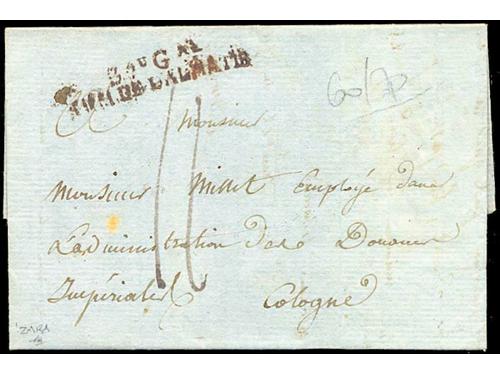 Bau GAL
ARM. DE DALMATIE
60/70
Monsieur
Monsieur Millet Employé dans
L'administration des Douanes
Impériales
Cologne
ZARA